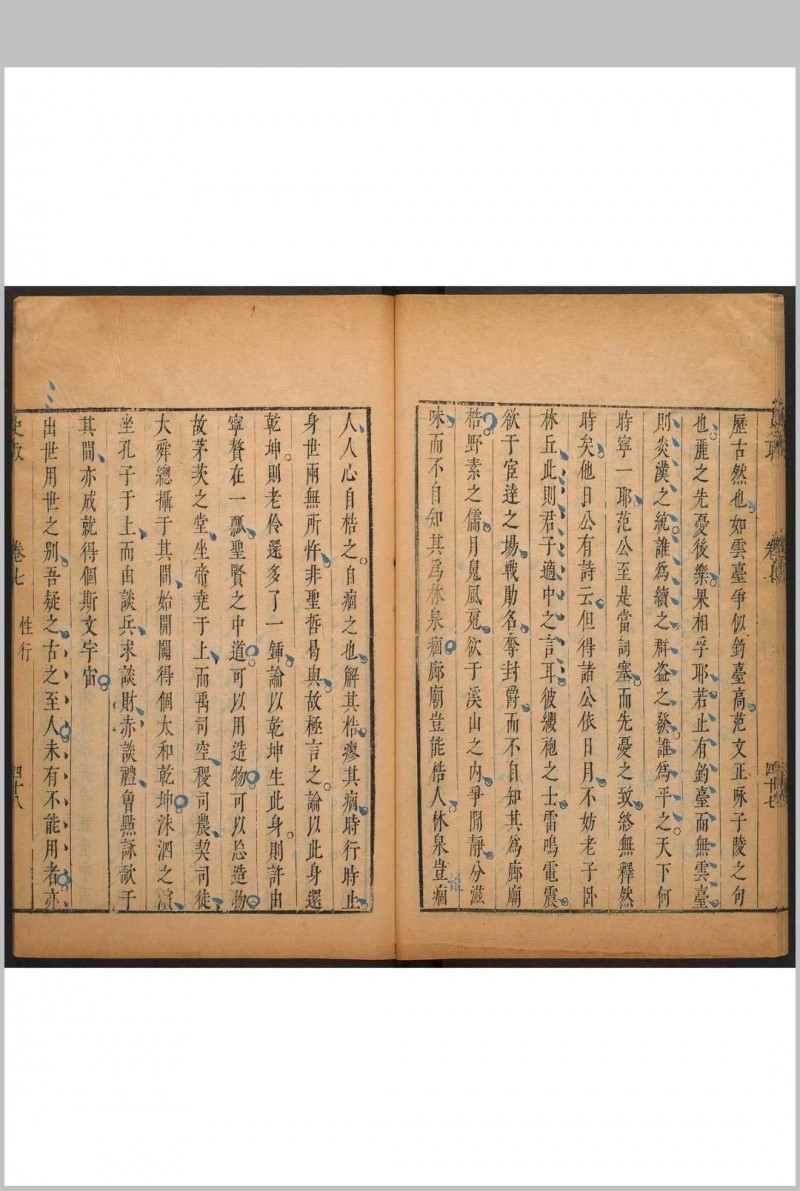 歷古然也如雲臺爭似釣臺高范文正咏子陵之句
也麗之先憂後樂果相孚耶若止有釣臺而無雲臺
則炎漢之統誰為續之群盜之發誰為平之天下何
時寧一耶范公至是當詞塞而先憂之致終無釋然
時矣他日公有詩云但得諸公依日月不妨老子卧
林丘此則君子適中之言耳彼纓袍之士雷鳴電震
欲于宦達之場戰助名孥封爵而不自知其為廊廟
梏野素之儒月嵬風冠欲于溪山之内爭閒靜分滋
味而不自知其為林泉痼廊廟豈能梏人林泉豈痼
人人心自梏之自痼之也解其梏瘳其痼時行時止
身世兩無所忤非聖哲曷與故極言之論以此身還
乾坤則老伶還多了一鍤論以乾坤生此身則許由
寧贅在一瓢聖賢之中道可以用造物可以忘造物
故茅茨之堂坐帝堯于上而禹司空稷司農契司徒
大舜總攝于其間始開闢得個太和乾坤洙泗之濱
坐孔子于上而由談兵求談財赤談禮魯㸃詠歌于
其間亦成就得個斯文宇宙
出世用世之别吾疑之古之至人未有不能用者亦
卷七
性行
四十八
四十七